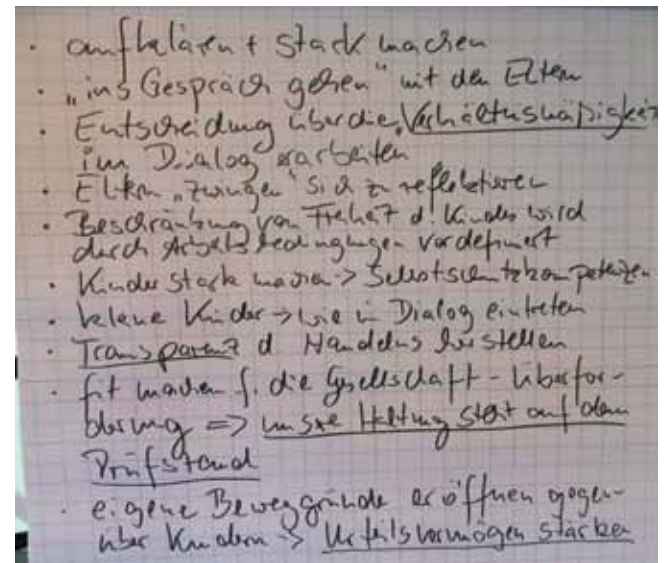 · aufklären + stark machen
· „ins Gespräch gehen" mit den Eltern
· Entscheidung über die „Verhältnismäßigkeit
im Dialog erarbeiten
· Eltern „zwingen" sich zu reflektieren
· Beschränkung von Freiheit d. Kindes wird
durch Arbeitsbedingungen vordefiniert
· Kinder stark machen -> Selbstschutzkompetenzen
· kleine Kinder -> wie in Dialog eintreten
· Transparenz d Handelns herstellen
· fit machen f. die Gesellschaft - Überfor-
derung => unsre Haltung steht auf dem
Prüfstand
· eigene Beweggründe eröffnen gegen-
über Kindern -> Urteilsvermögen stärken